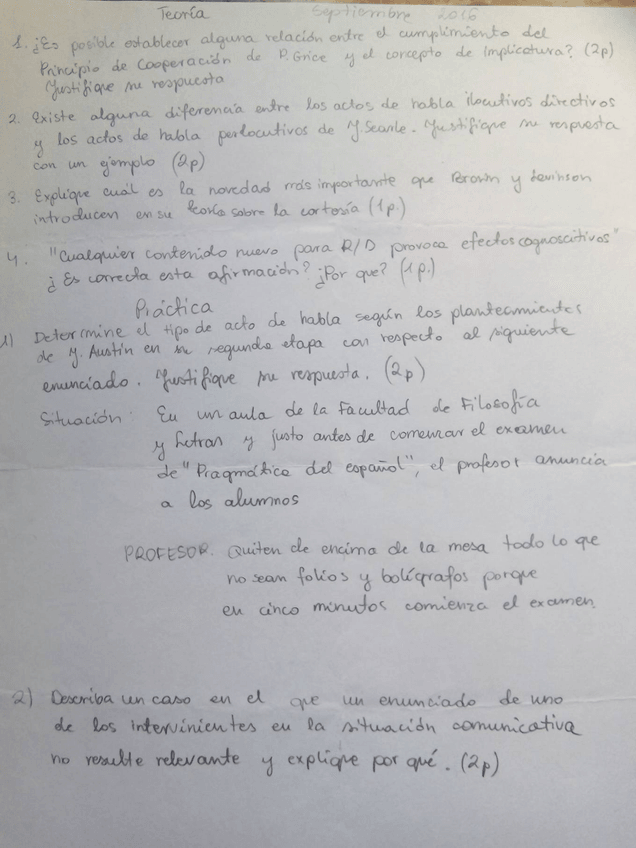 Teoría Septiembre 2016
1. ¿Es posible establecer alguna relación entre el cumplimiento del
Principio de Cooperación de P. Grice y el concepto de Implicatura? (2p)
Justifique su respuesta
2. Existe alguna diferencia entre los actos de habla ilocutivos directivos
y los actos de habla perlocutivos de J. Searle. Justifique su respuesta
con un ejemplo (2p)
3. Explique cuál es la novedad más importante que Brown y Levinson
introducen en su teoría sobre la cortesía (1p.)
4. "Cualquier contenido nuevo para R/D provoca efectos cognoscitivos"
¿Es correcta esta afirmación? ¿Por qué? (1p.)
Práctica
1) Determine el tipo de acto de habla según los planteamientos
de J. Austin en su segunda etapa con respecto al siguiente
enunciado. Justifique su respuesta. (2p)
Situación: En un aula de la Facultad de Filosofía
y Letras y justo antes de comenzar el examen
de "Pragmática del español", el profesor anuncia
a los alumnos
PROFESOR. Quiten de encima de la mesa todo lo que
no sean folios y bolígrafos porque
en cinco minutos comienza el examen.
2) Describa un caso en el que un enunciado de uno
de los intervinientes en la situación comunicativa
no resulte relevante y explique por qué. (2p)